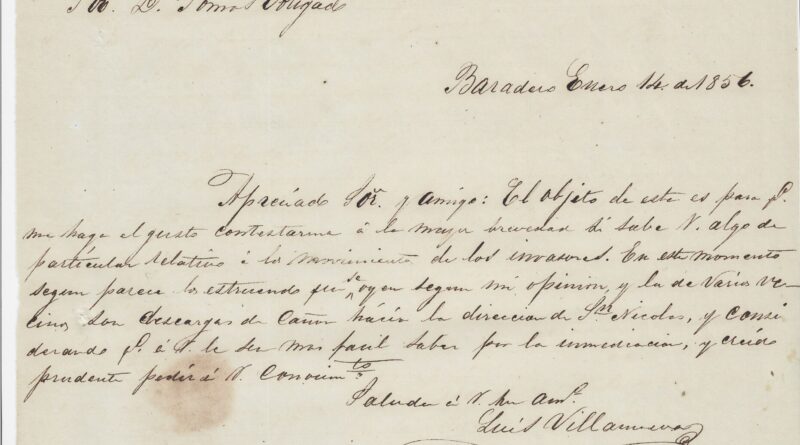 Sor. D. Tomas Obligado
Baradero Enero 14 de 1856.
Apreciado Sor. y amigo: El objeto de esta es para q.
me haga el gusto contestarme á la mayor brevedad si sabe V. algo de
particular relativo á los movimientos de los invasores. En este momento
segun parece los estruendos que se oyen segun mi opinion, y la de varios ve-
cinos son descargas de cañon hácia la direccion de Sn. Nicolas, y consi
derando q. á V. le sea mas facil saber por la inmediacion, y creido
prudente pedir á V. conocimto
Saluda á V. su am.º
Luis Villanueva